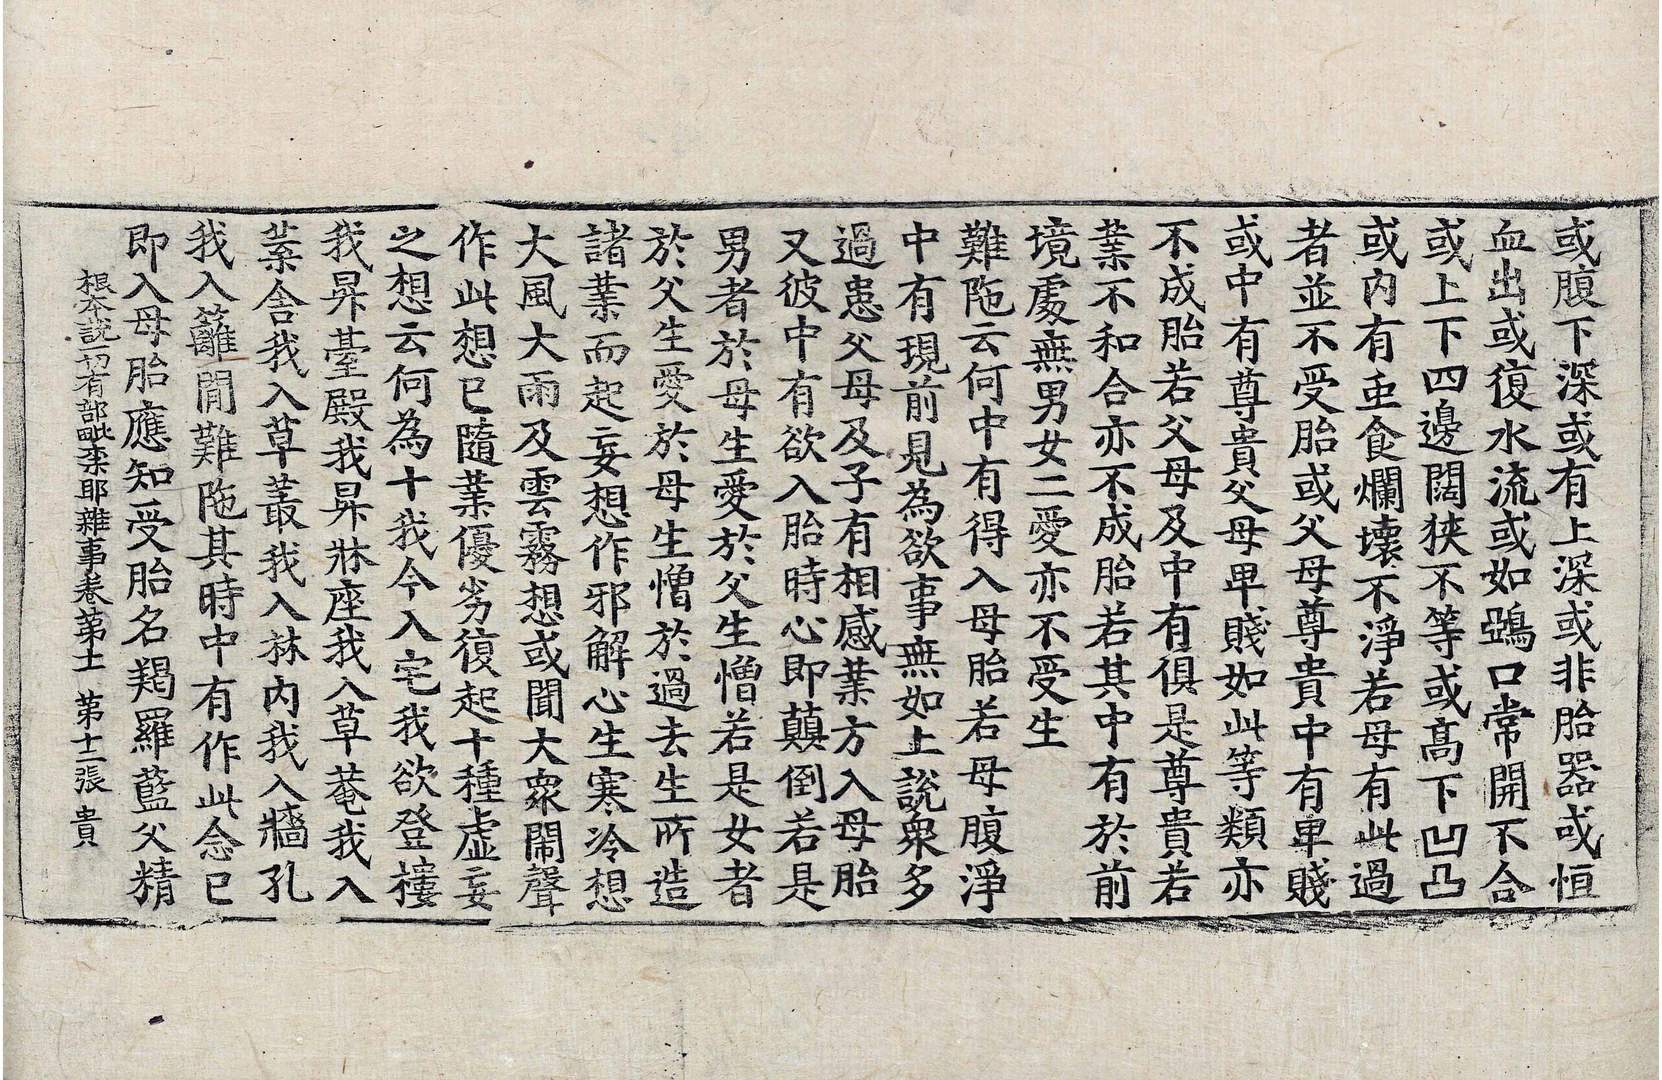 或腹下深或有上深或非胎器或恒
血出或復水流或如鵄口常開不合
或上下四邊闊狹不等或高下凹凸
或內有虫食爛壞不淨若母有此過
者並不受胎或父母尊貴中有卑賤
或中有尊貴父母卑賤如此等類亦
不成胎若父母及中有俱是尊貴若
業不和合亦不成胎若其中有於前
境處無男女二愛亦不受生
難陁云何中有得入母胎若母腹淨
中有現前見為欲事無如上說衆多
過患父母及子有相感業方入母胎
又彼中有欲入胎時心即顛倒若是
男者於母生愛於父生憎若是女者
於父生愛於母生憎於過去生所造
諸業而起妄想作邪解心生寒冷想
大風大雨及雲霧想或聞大衆鬧聲
作此想已隨業優劣復起十種虛妄
之想云何為十我今入宅我欲登樓
我昇臺殿我昇牀座我入草菴我入
葉舍我入草叢我入林內我入牆孔
我入籬間難陁其時中有作此念已
即入母胎應知受胎名羯羅藍父精
根本說一切有部毗柰耶雜事卷第十一 第十二張 貴